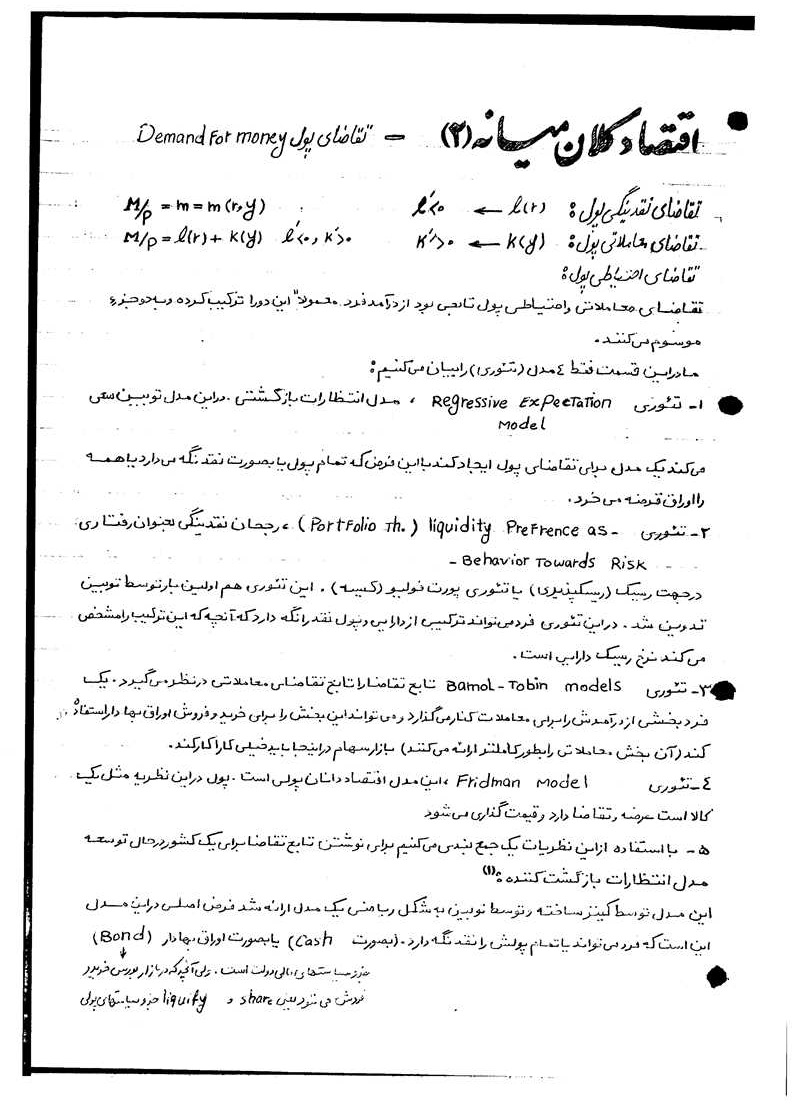 اقتصاد کلان میانه (۲) - تقاضای پول Demand For money
تقاضای نقدینگی پول: l(r) ← l'<0   M/P = m = m(r,y)
تقاضای معاملاتی پول: K(y) ← K'>0   M/P = l(r) + K(y)   l'<0, K'>0
تقاضای احتیاطی پول:
تقاضای معاملاتی و احتیاطی پول تابعی بود از درآمد فرد معمولاً این دو را ترکیب کرده و به دو جزء
موسوم می‌کنند.
ما در این قسمت فقط ٤ مدل (تئوری) را بیان می‌کنیم:
۱- تئوری Regressive Expectation ، مدل انتظارات بازگشتی. در این مدل توبین سعی
Model
می‌کند یک مدل برای تقاضای پول ایجاد کند با این فرض که تمام پول یا بصورت نقد نگه می‌دارد یا همه
را اوراق قرضه می خرد.
۲- تئوری liquidity Prefrence as- (Portfolio Th.) ، رجحان نقدینگی بعنوان رفتاری
- Behavior Towards Risk
در جهت رسیک (ریسکپذیری) یا تئوری پورت فولیو (کیسه). این تئوری هم اولین بار توسط توبین
تدوین شد. در این تئوری فرد می‌تواند ترکیبی از دارایی و پول نقد را نگه دارد که آنچه که این ترکیب را مشخص
می کند نرخ رسیک دارایی است.
۳- تئوری Bamol-Tobin models تابع تقاضا را تابع تقاضای معاملاتی در نظر می‌گیرد. یک
فرد بخشی از درآمدش را برای معاملات کنار می‌گذارد و می تواند این بخش را برای خرید و فروش اوراق بهادار استفاده
کند (آن بخش معاملاتی را بطور کاملتر ارائه می کنند) بازار سهام در اینجا باید خیلی کارا کار کند.
٤- تئوری Fridman Model ، این مدل اقتصاددانان پولی است. پول در این نظریه مثل یک
کالا است عرضه و تقاضا دارد و قیمت گذاری می شود
۵- با استفاده از این نظریات یک جمع بندی می‌کنیم برای نوشتن تابع تقاضا برای یک کشور در حال توسعه
مدل انتظارات بازگشت کننده: (۱)
این مدل توسط کینز ساخته و توسط توبین به شکل ریاضی یک مدل ارائه شد فرض اصلی در این مدل
این است که فرد می تواند یا تمام پولش را نقد نگه دارد. (بصورت Cash) یا بصورت اوراق بهادار (Bond)
جزو سیاستهای مالی دولت است. ولی آنچه که در بازار بورس خرید و
فروش می شود یعنی share و liquify جزو سیاستهای پولی